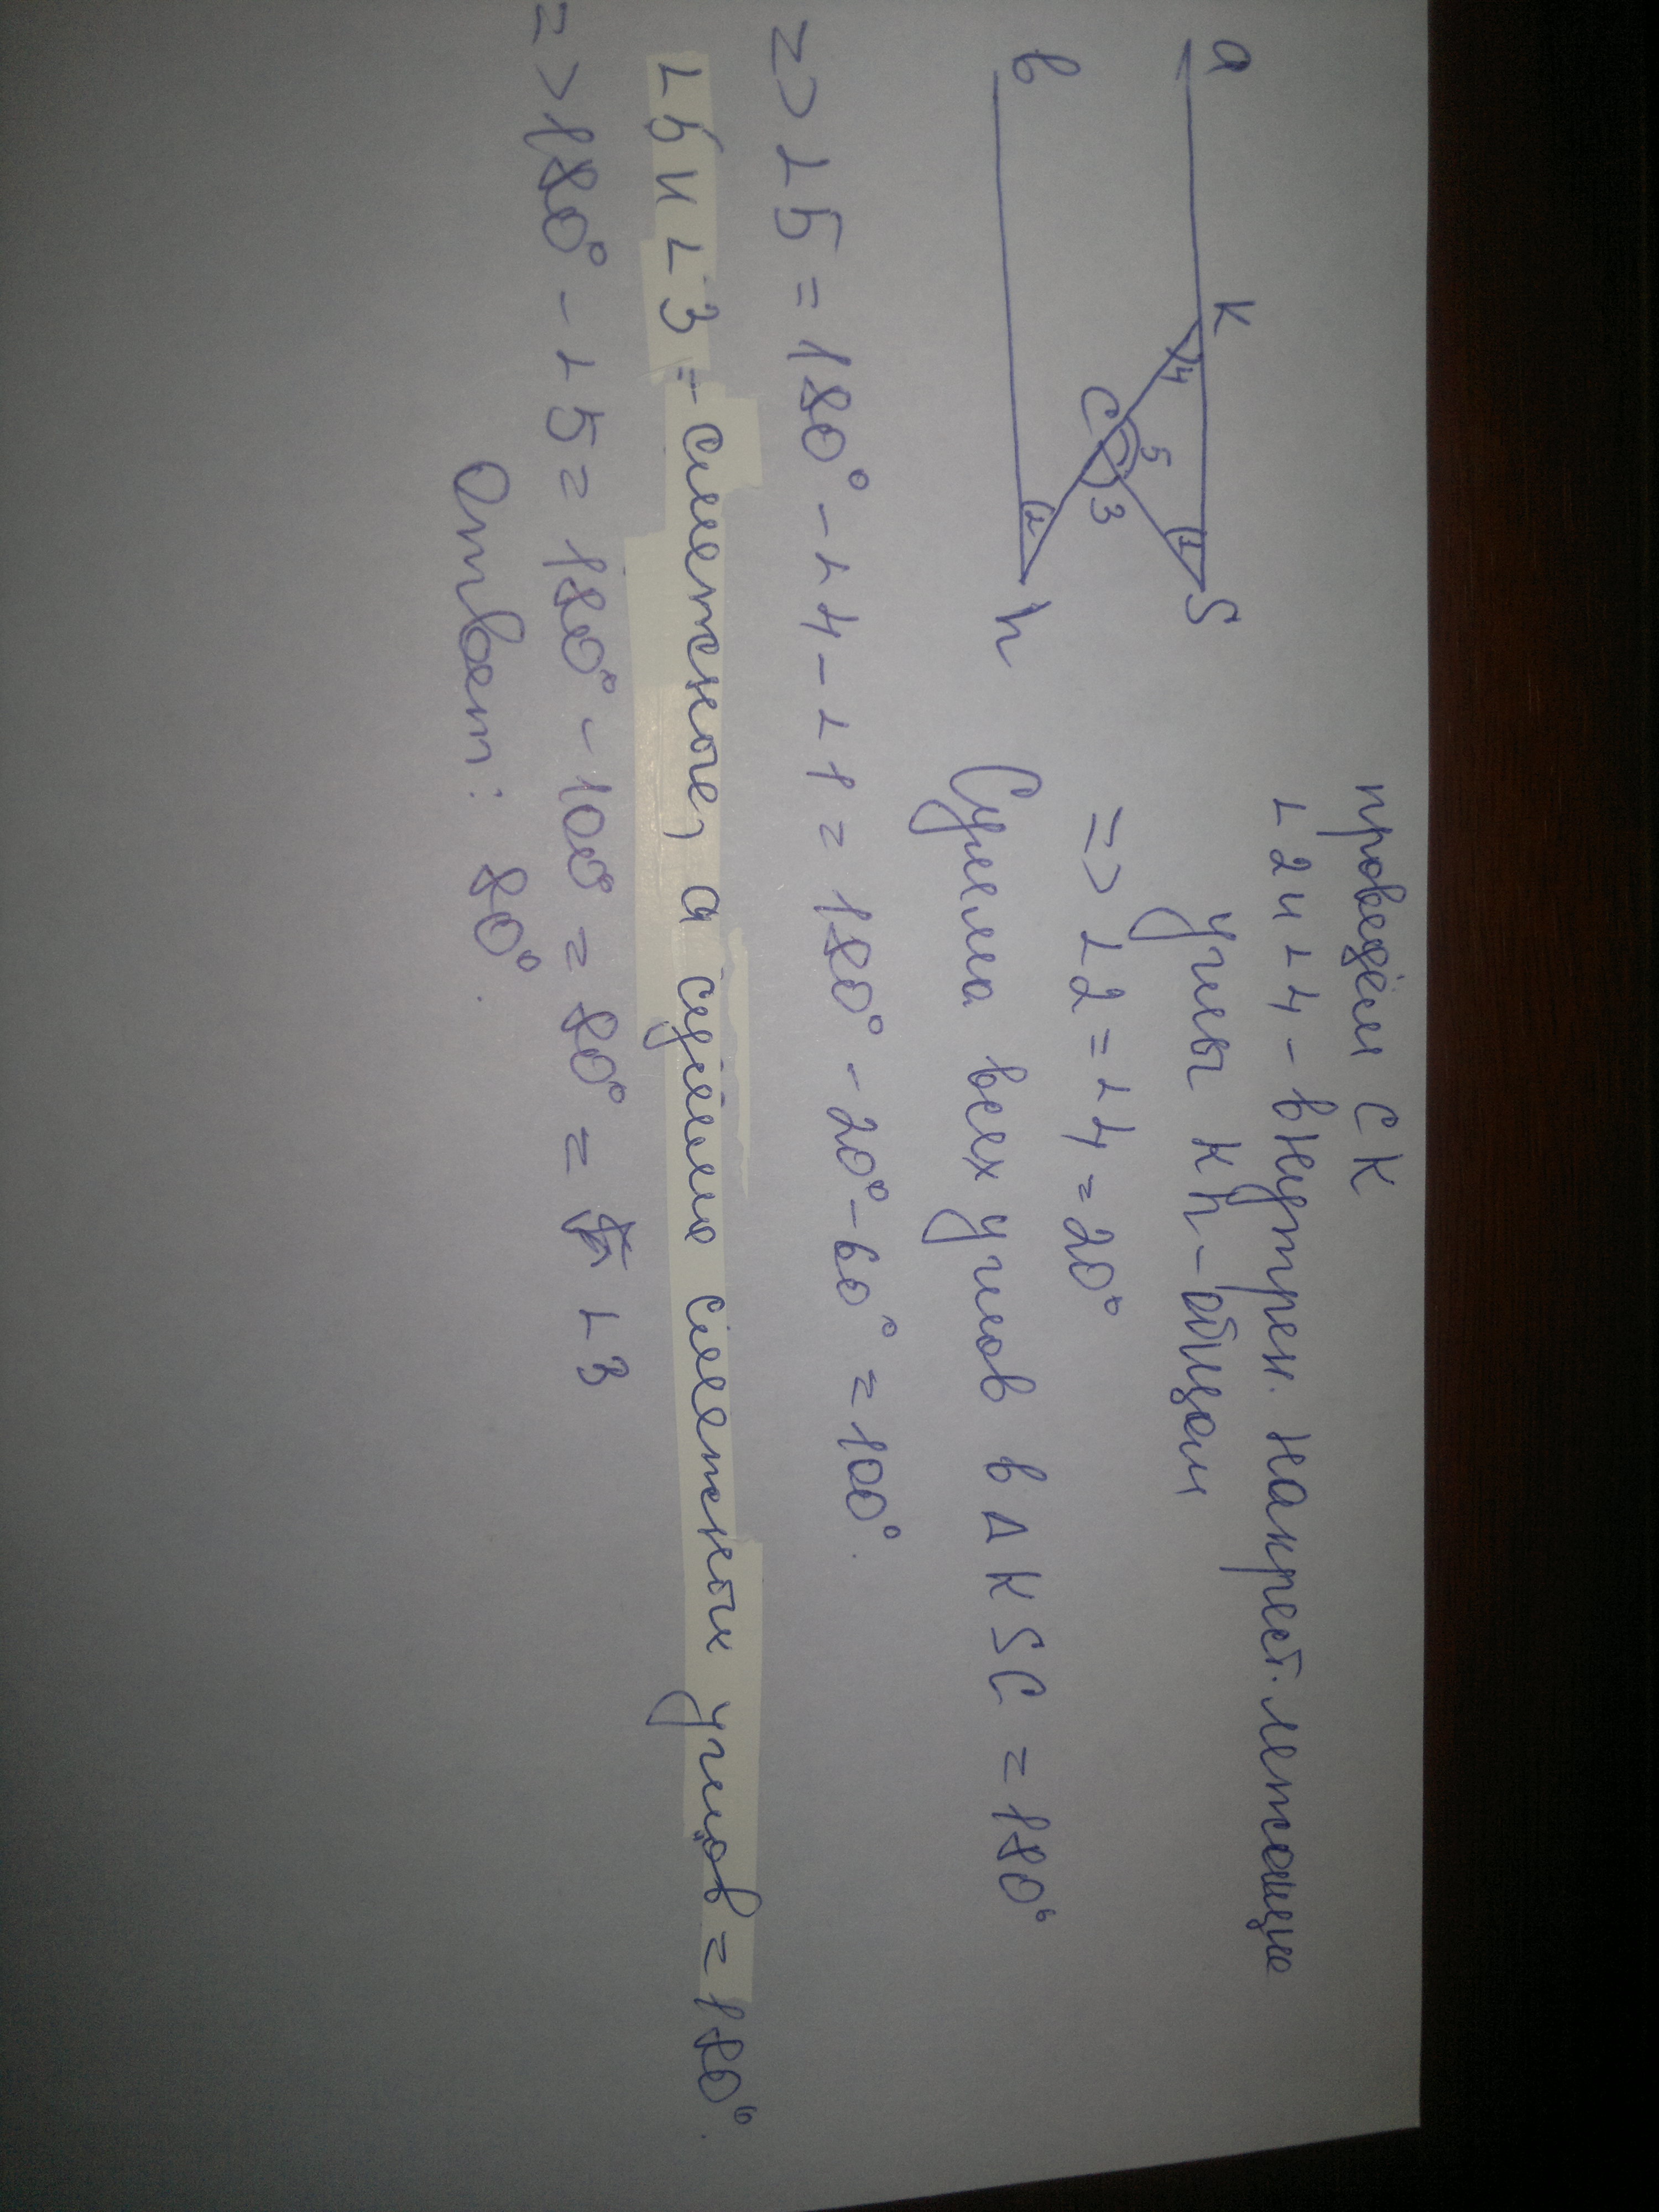 проведём СК
∠2 и ∠4 - внутрен. накрест. лежащие
углы Kh - общая
=> ∠2 = ∠4 = 20°
Сумма всех углов в Δ KSC = 180°
=> ∠5 = 180° - ∠4 - ∠1 = 180° - 20° - 60° = 100°.
∠5 и ∠3 - смежные, а сумма смежных углов = 180°.
=> 180° - ∠5 = 180° - 100° = 80° = ∠3
Ответ: 80°.
a
K
4
S
1
5
C
3
в
2
h